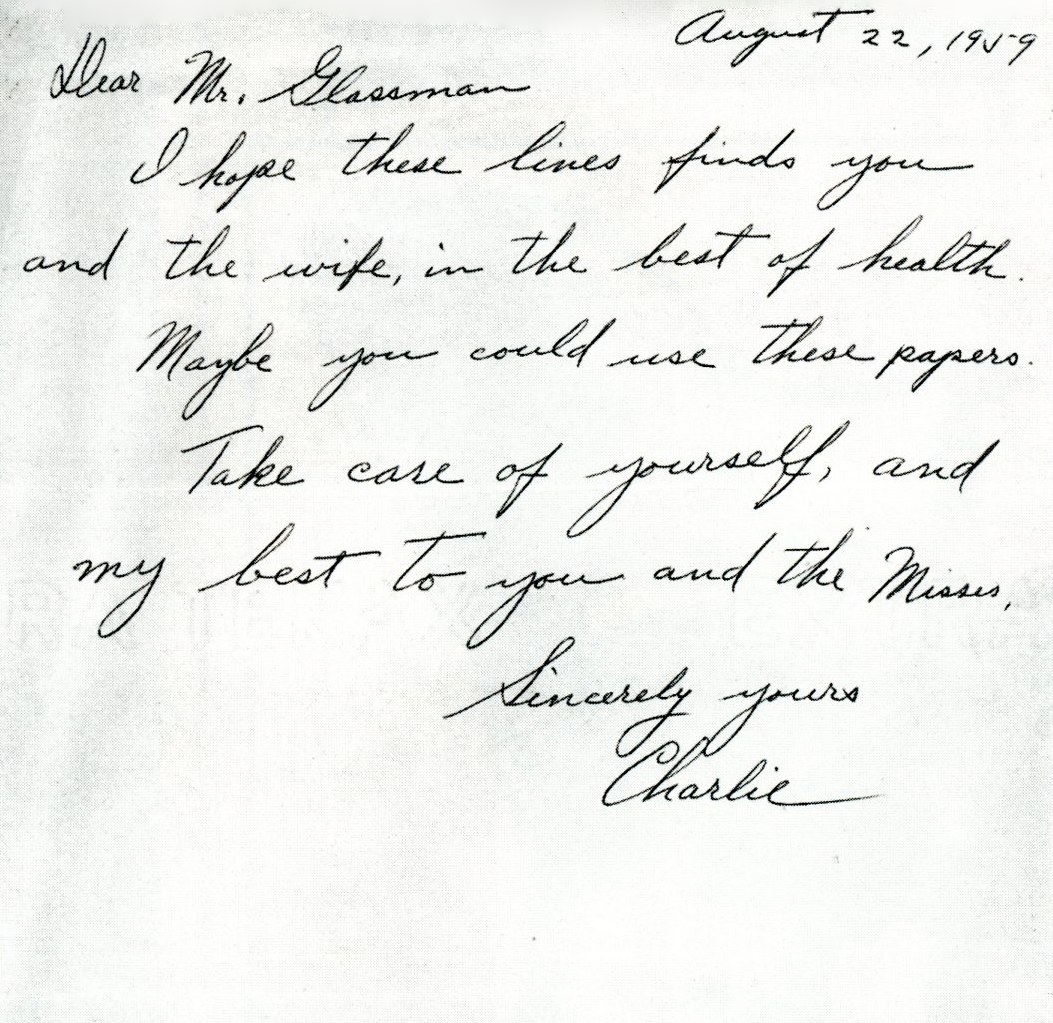 August 22, 1959
Dear Mr. Glassman
I hope these lines finds you
and the wife, in the best of health.
Maybe you could use these papers.
Take care of yourself, and
my best to you and the Misses,
Sincerely yours
Charlie